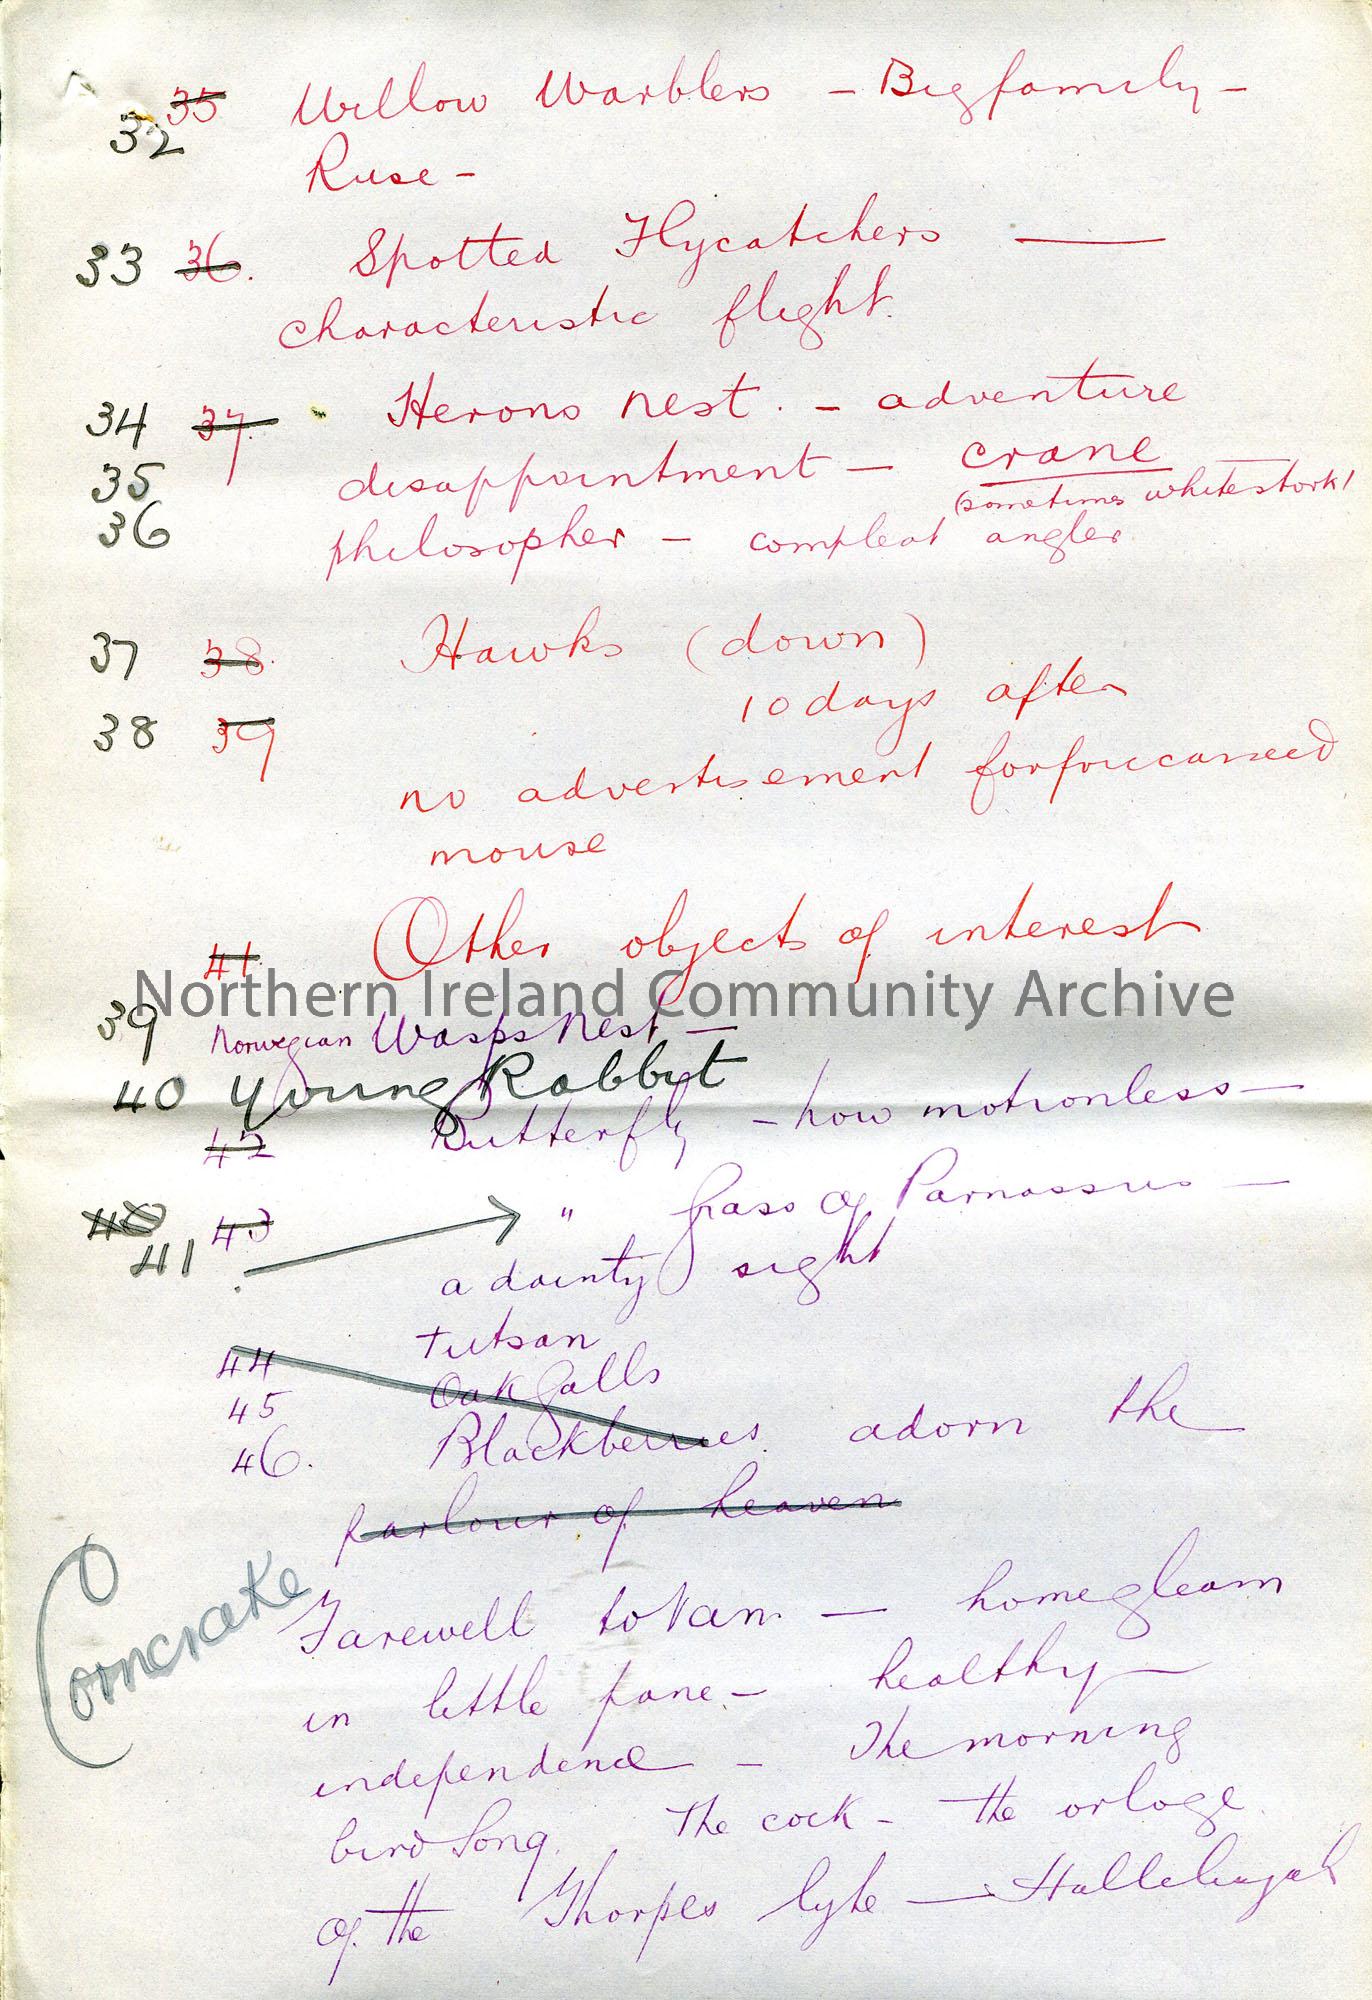 35 Willow Warblers - Big family -
32
Ruse -
33 36. Spotted Flycatchers —
characteristic flight.
34 37. Herons nest. - adventure
35 disappointment - crane
(sometimes white stork)
36 philosopher - compleat angler
37 38. Hawks (down)
38 39 10 days after
no advertisement for
mouse
41 Other objects of interest
Northern Ireland Community Archive
39 Norwegian Wasps Nest -
40 Young Rabbit
42 Butterfly - how motionless -
40 43 " Grass of Parnassus -
41
a dainty sight
44 Tutsan
45 Oak Galls
46. Blackberries adorn the
parlour of heaven
Corncrake
Farewell to - home gleam
in little pane - healthy -
independence - The morning
bird song. The cock - the orloge
of the Thorpes lyte - Hallelujah